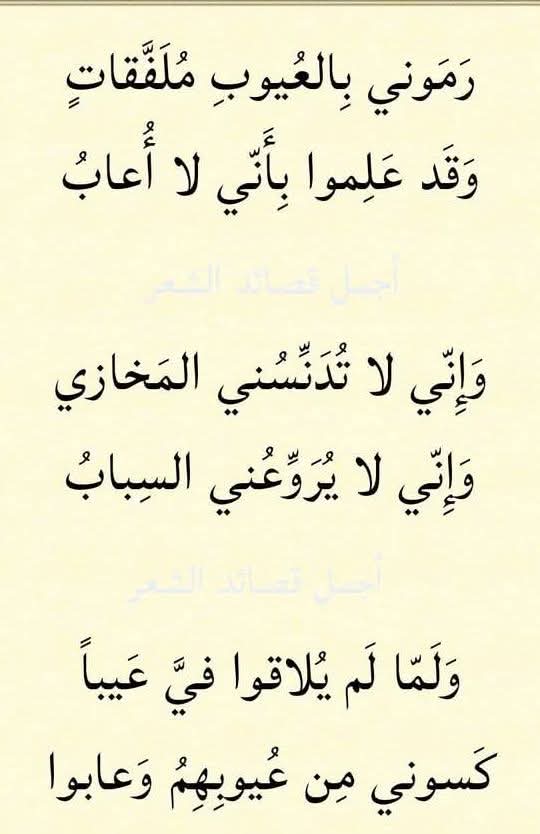 رَمَوني بِالعُيوبِ مُلَفَّقاتٍ
وَقَد عَلِموا بِأَنّي لا أُعابُ
أجمل قصائد الشعر
وَإِنّي لا تُدَنِّسُني المَخازي
وَإِنّي لا يُرَوِّعُني السِبابُ
أجمل قصائد الشعر
وَلَمّا لَم يُلاقوا فيَّ عَيباً
كَسوني مِن عُيوبِهِمُ وَعابوا